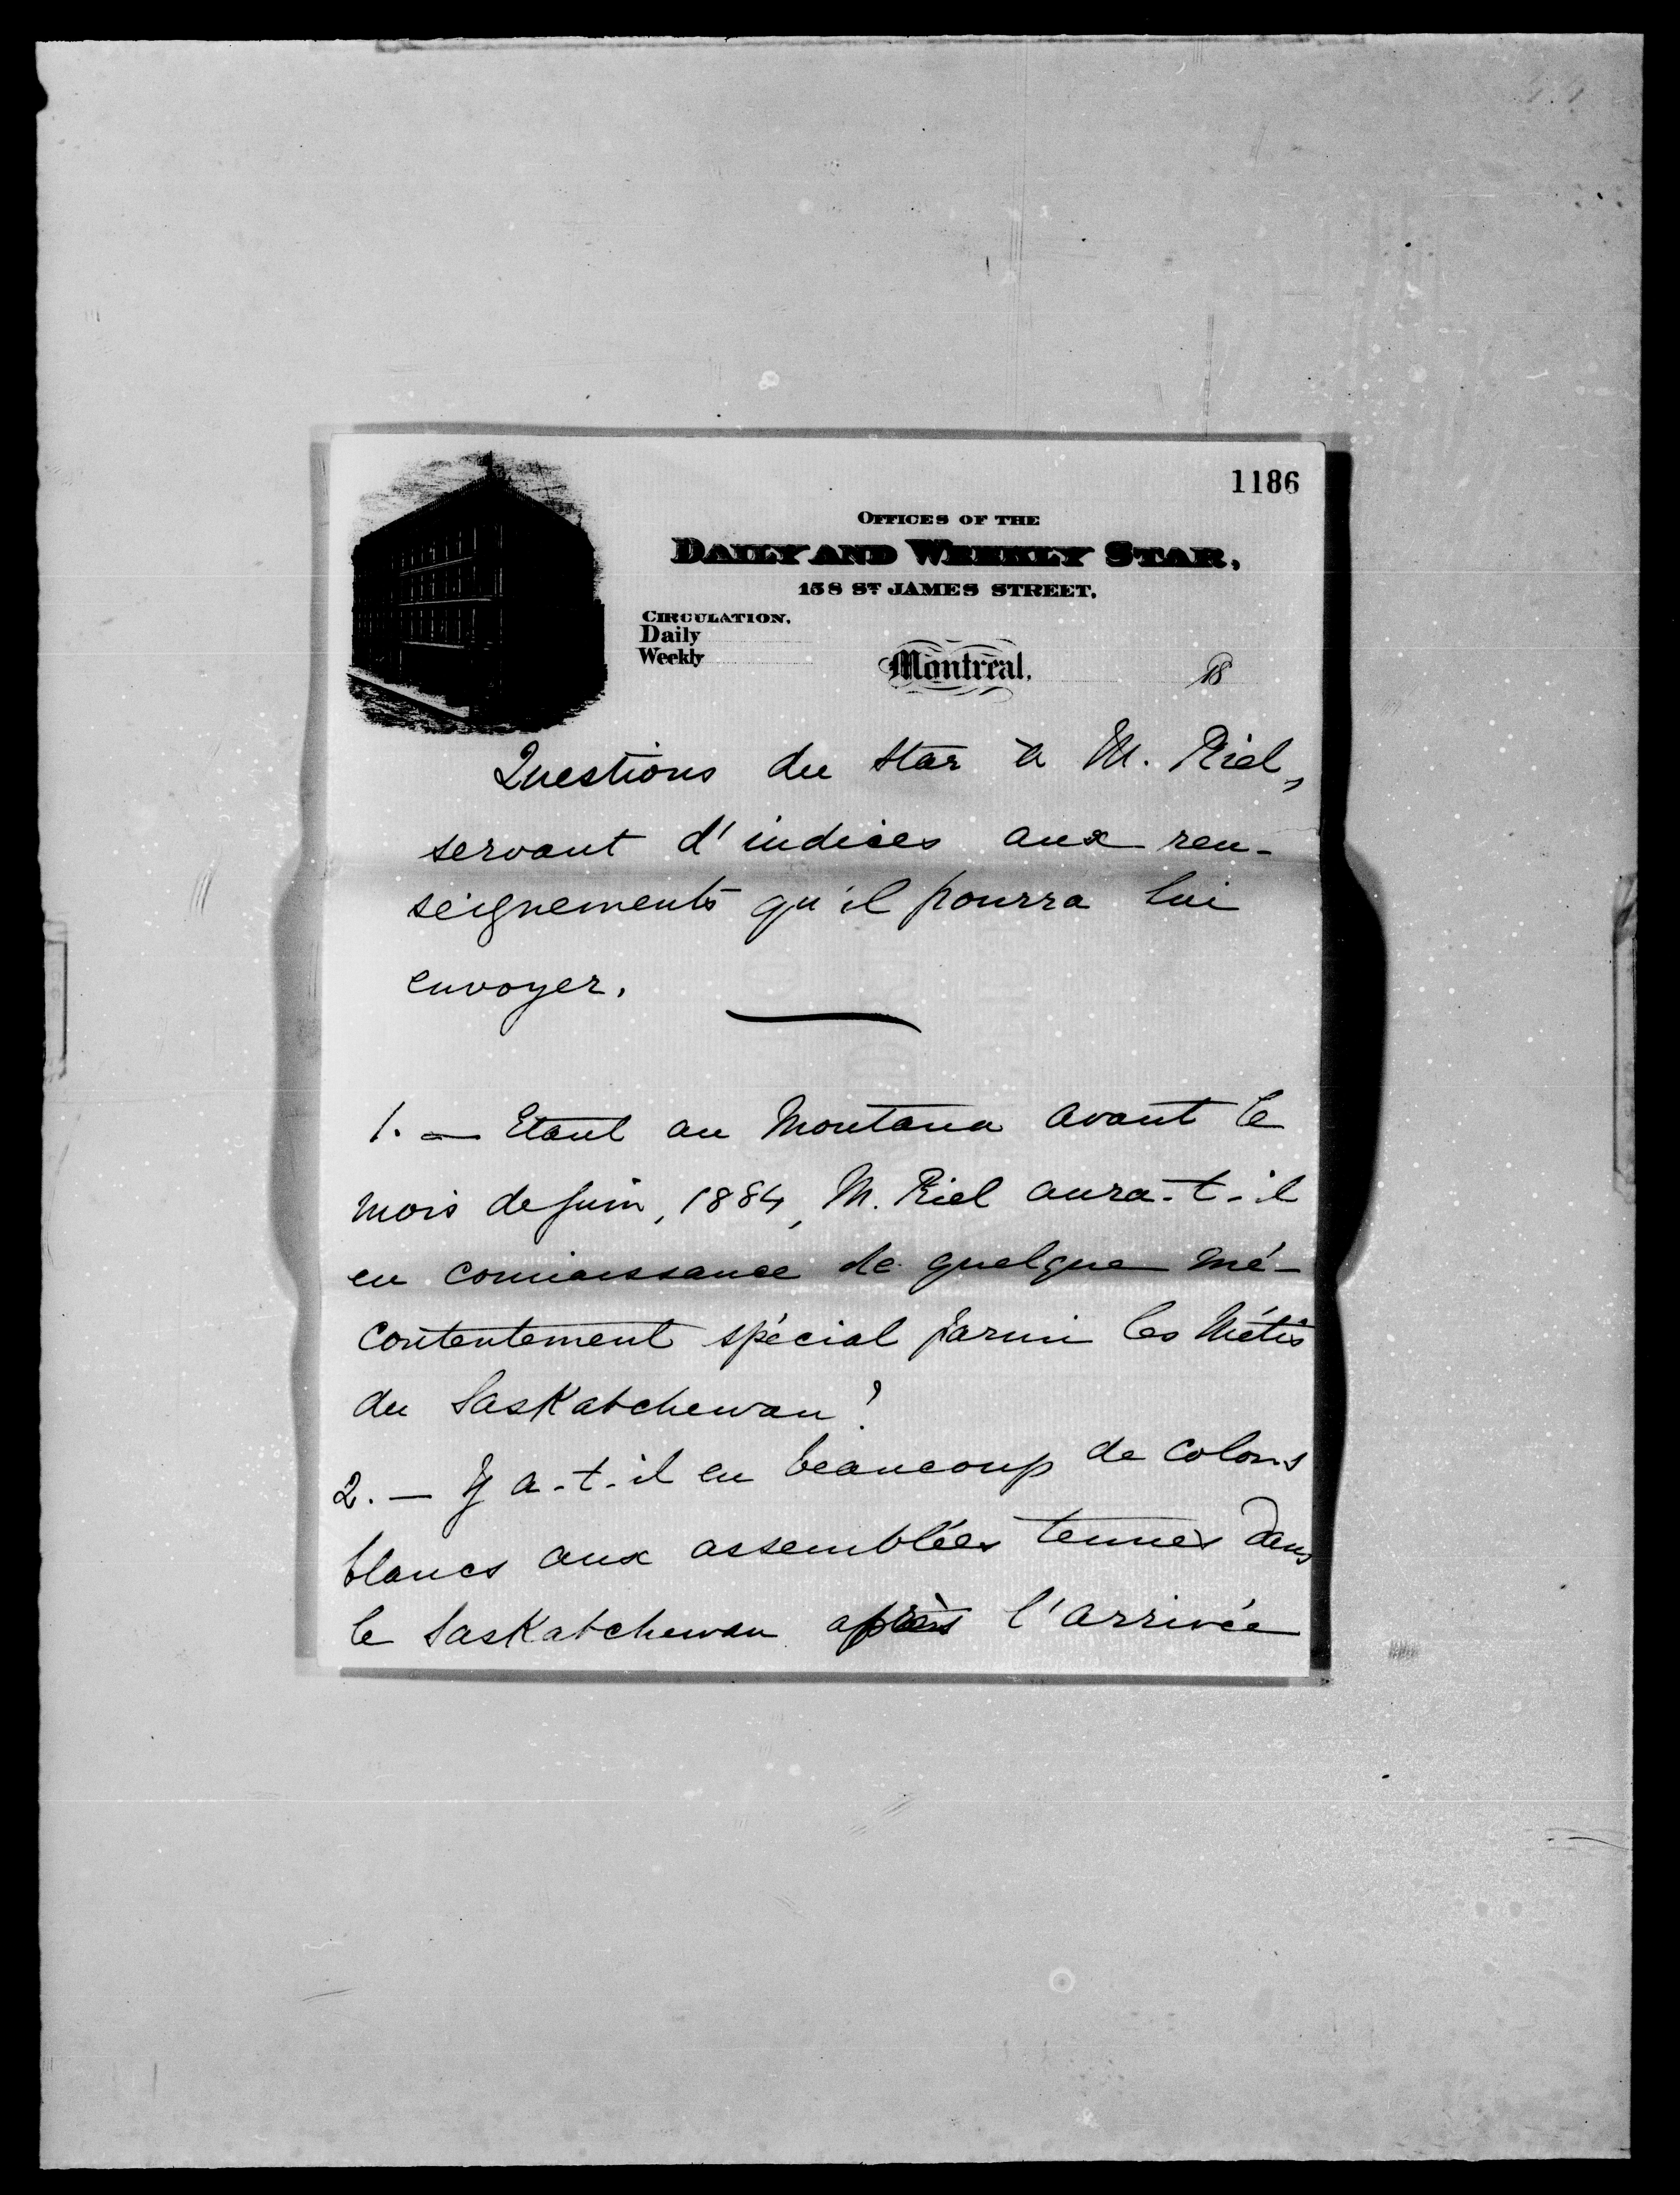 1186
OFFICES OF THE
DAILY AND WEEKLY STAR,
158 ST JAMES STREET.
CIRCULATION.
Daily
Weekly
Montreal, 18
Questions du Star à M. Riel,
servant d'indices aux ren-
seignements qu'il pourra lui
envoyer.
1. — Etant au Montana avant le
mois de Juin, 1884, M. Riel aura-t-il
eu connaissance de quelque mé-
contentement spécial parmi les Métis
du Saskatchewan?
2. — Y a-t-il eu beaucoup de colons
blancs aux assemblées tenues dans
le Saskatchewan après l'arrivée